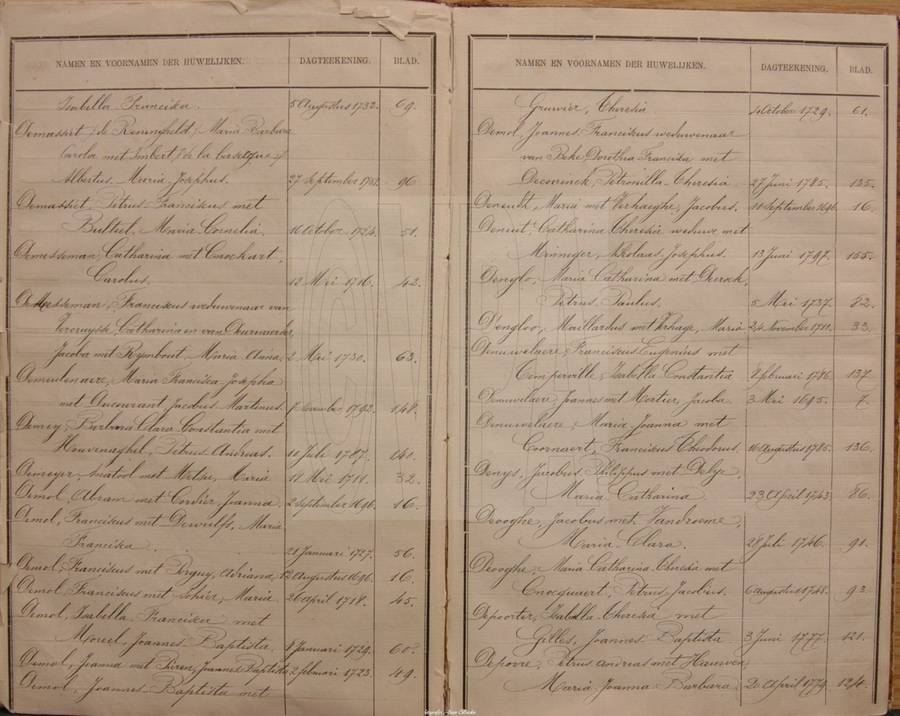 NAMEN EN VOORNAMEN DER HUWELIJKEN. DAGTEEKENING. BLAD.
Isabella Francisca. 5 Augustus 1732. 69.
Demassiet de Reninghelst, Maria Barbara
Carola met Imbert, de la
Albertus Maria Josephus. 27 September 96
Demassiet Petrus Franciscus met
Bulteel, Maria Cornelia. 16 October 1724. 51.
Demesseman, Catharina met Cnockaert,
Carolus. 12 Mei 1716. 42.
Demesseman, Franciscus weduwenaar van
Catharina en van
Jacoba met Rymbout, Maria Anna, 2 Mei 1730. 63.
Demeulenaere, Maria Francisca Josepha
met Jacobus Martinus. 7 1792. 148.
Demey, Barbara Clara Constantia met
Houvenaghel, Petrus Andreas. 10 Juli 1787. 140.
Demeyer, met Metsu, Maria 11 Mei 1711. 32.
Demol, Abram met Cordier, Joanna. 2 September 1696. 16.
Demol, Franciscus met Dewulfs, Maria
Francisca. 21 Januari 1727. 56.
Demol, Franciscus met Adriana. 12 Augustus 1696. 16.
Demol, Franciscus met Maria. 26 April 1718. 45.
Demol, Isabella Francisca met
Moreel, Joannes Baptista. 8 Januari 1729. 60.
Demol, Joanna met Joannes Baptista 2 februari 1723. 49.
Demol, Joannes Baptista met
NAMEN EN VOORNAMEN DER HUWELIJKEN. DAGTEEKENING. BLAD.
Gruwier, Theresia. October 1729. 61.
Demol, Joannes Franciscus weduwenaar
van Beke, Dorothea Francisca met
Deconinck, Petronilla Theresia 27 Juni 1785. 135.
Maria met Verhaeghe, Jacobus. 11 September 1696. 16.
Catharina Theresia weduwe met
Minniger, Nicolaas Josephus. 13 Juni 1797. 155.
Denglo, Maria Catharina met
Petrus Paulus. 5 Mei 1737. 82.
D'engloo, Maillardus met Maria 24 November 1711. 33.
Denuwelaere, Franciscus Eugenius met
Comperville, Isabella Constantia 8 februari 1786. 137
Denuwelaere, Joannes met Mortier, Jacoba. 3 Mei 1695. 7.
Denuwelaere, Maria Joanna met
Coornaert, Franciscus Theodorus. 16 Augustus 1785. 136.
Denys, Jacobus Philippus met
Maria Catharina 23 April 1743 86.
Deooghe, Jacobus met Vandromme,
Maria Clara. 28 Juli 1746. 91.
Deooghe, Maria Catharina Theresia met
Cnocquaert, Petrus Jacobus. 6 Augustus 93.
Depoorter, Isabella Theresia met
Gilles, Joannes Baptista 3 Juni 1777. 121.
Depovre, Petrus Andreas met
Maria Joanna Barbara. 20 April 1779. 124.